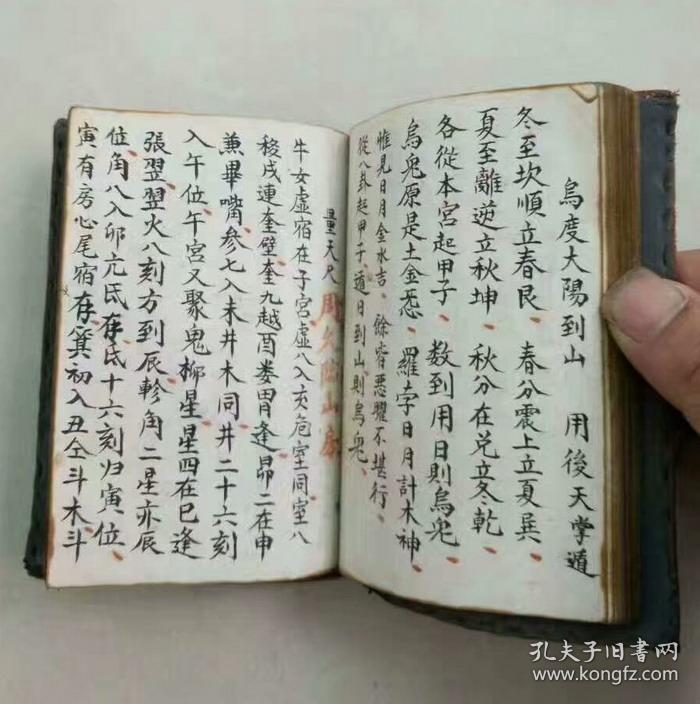 烏度大陽到山　用後天掌遁
冬至坎順立春艮、春分震上立夏巽、
夏至離逆立秋坤、秋分在兌立冬乾、
各從本宮起甲子、数到用日則烏兔、
烏兔原是土金炁、羅孛日月計木神、
惟見日月金水吉、餘皆惡曜不堪行、
從八卦起甲子、遁日到山則烏兔、
量天尺
牛女虛宿在子宮虛八入亥危室同室八
移戌連奎壁奎九越酉娄胃逢昴二在申
兼畢嘴參七入未井木同井二十六刻
入午位午宮又聚鬼柳星星四在巳逢
張翌翌火八刻方到辰軫角二星亦辰
位角八入卯亢氐存氐十六刻归寅位
寅有房心尾宿存箕初入丑仝斗木斗
孔夫子旧書网
www.kongfz.com